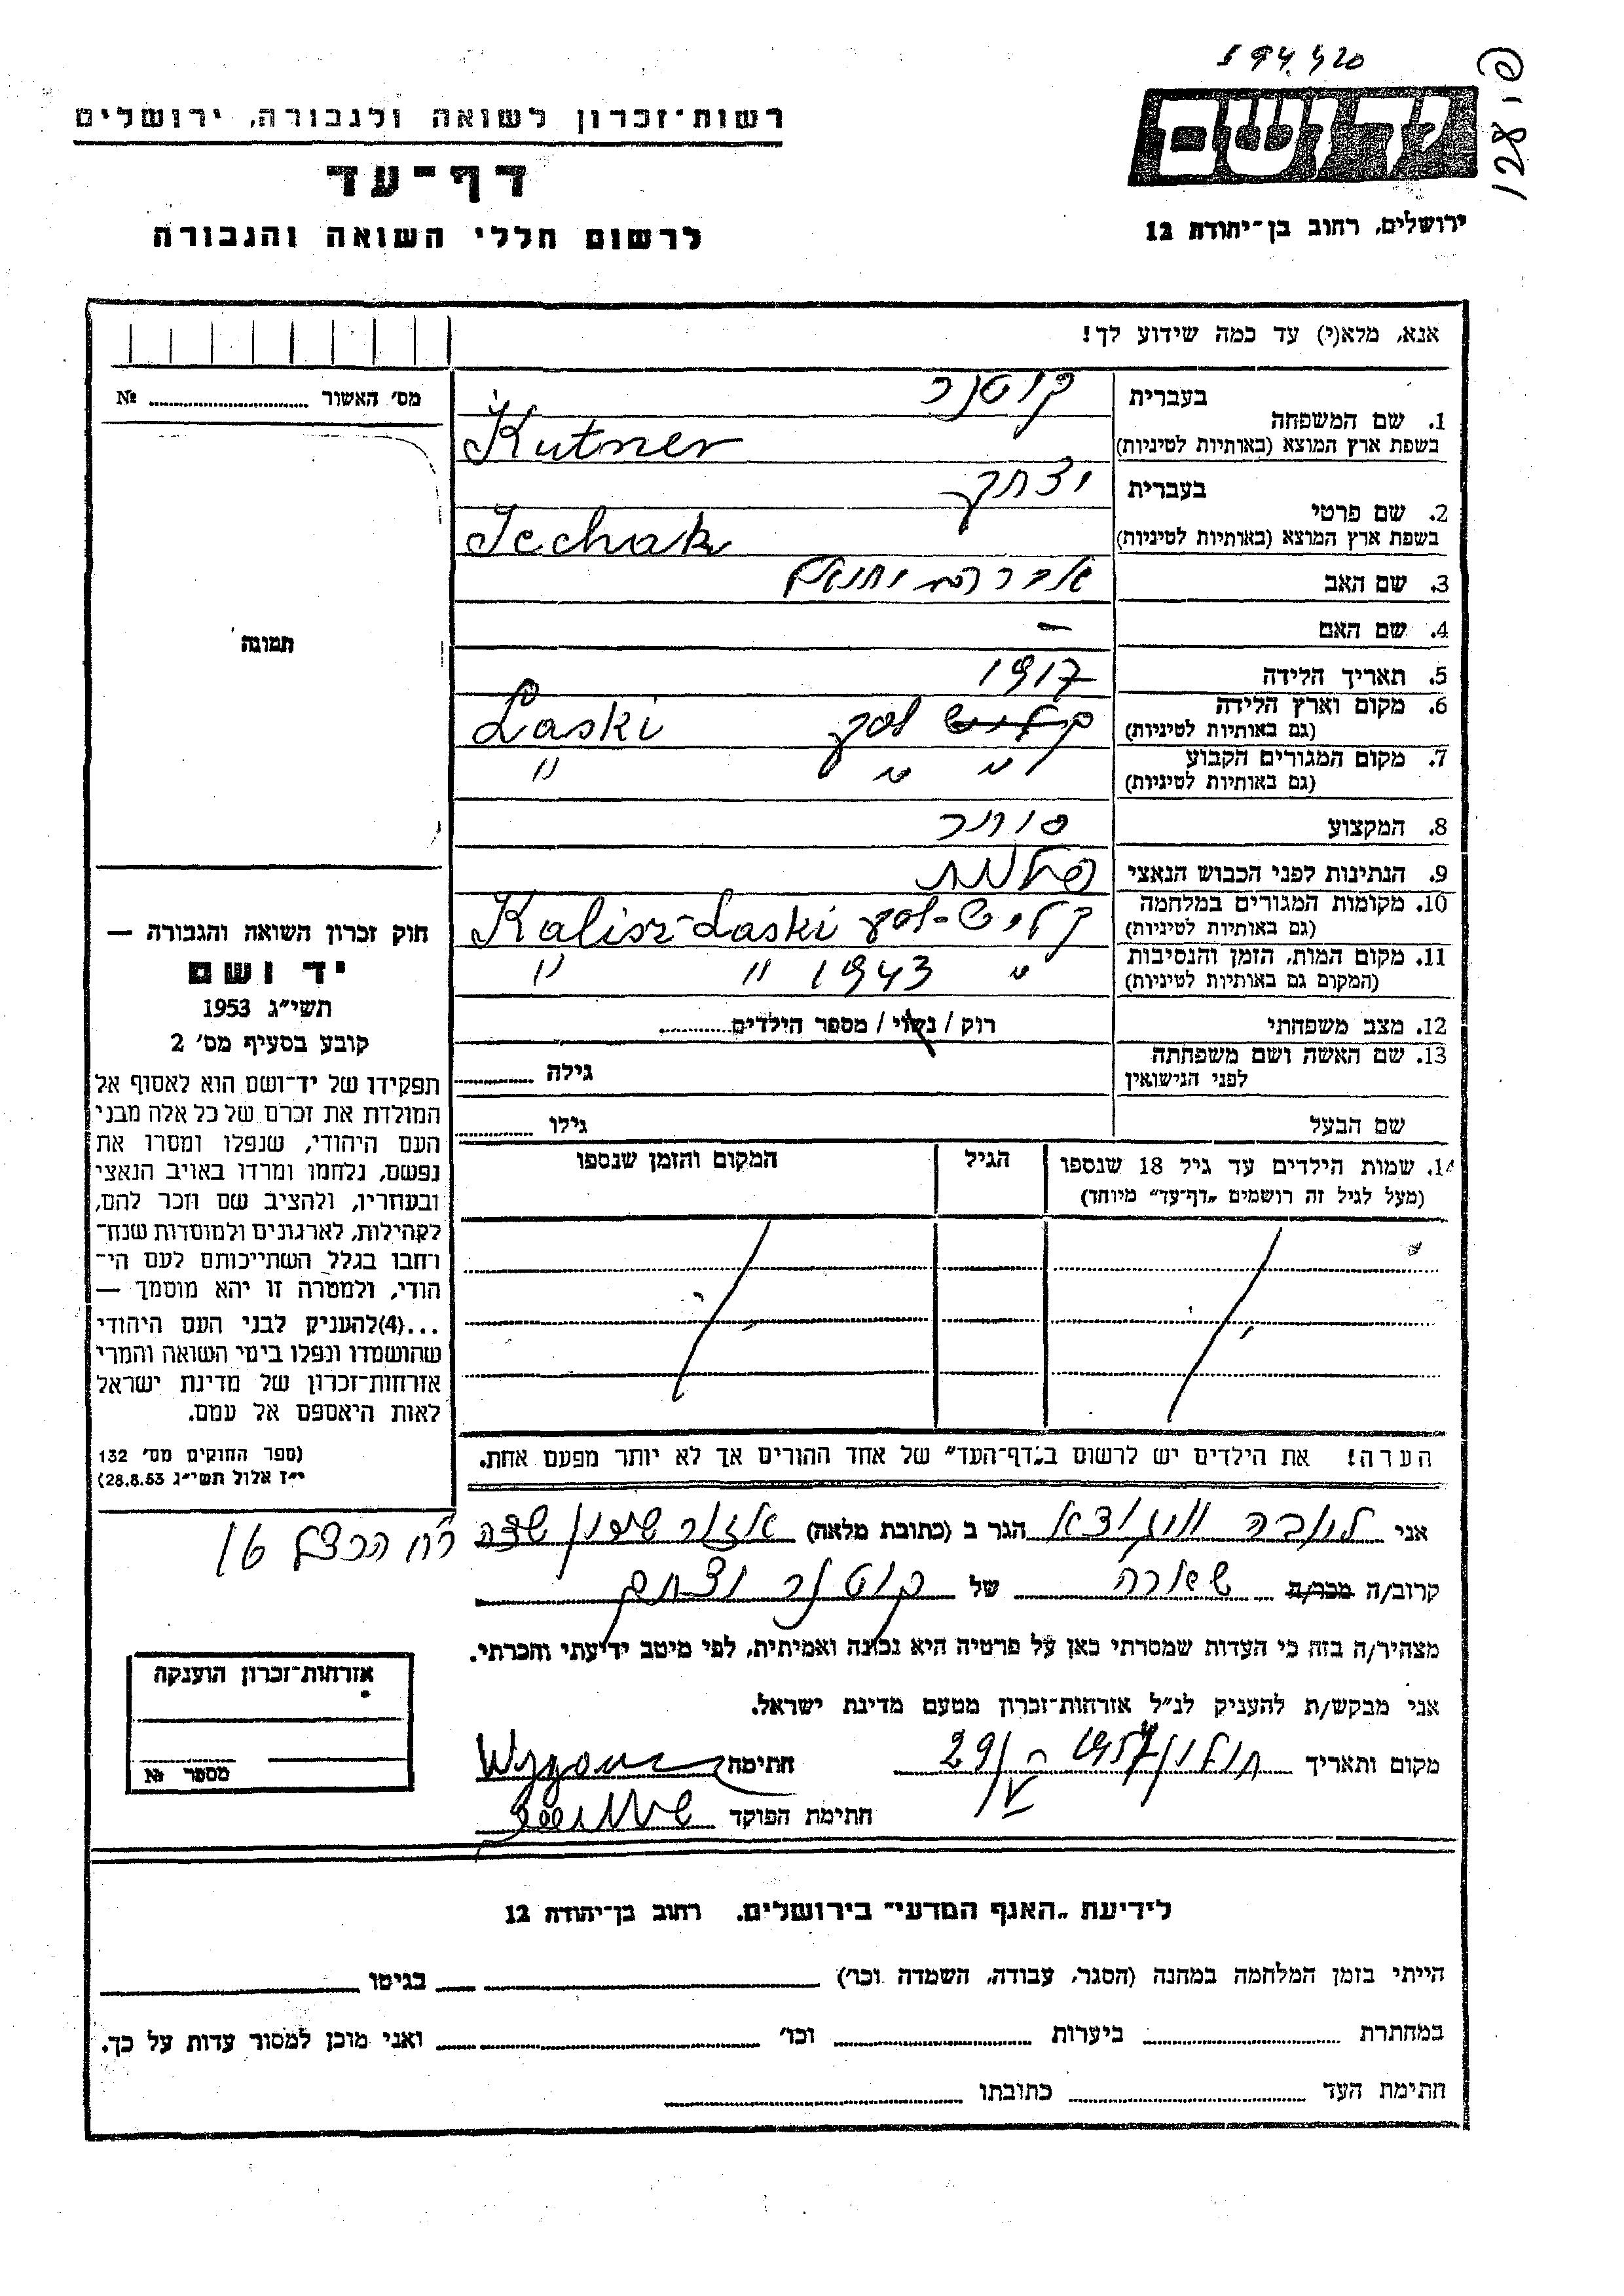 594420
128 פי
רשות־זכרון לשואה ולגבורה, ירושלים
דף־עד
לרשום חללי השואה והגבורה
ידושם
ירושלים, רחוב בן־יהודה 12
אנא, מלא(י) עד כמה שידוע לך!
מס׳ האשור № 
בעברית קוטנר
1. שם המשפחה
בשפת ארץ המוצא (באותיות לטיניות) Kutner
בעברית יצחק
2. שם פרטי
בשפת ארץ המוצא (באותיות לטיניות) Icchak
3. שם האב אברהם
4. שם האם —
5. תאריך הלידה 1917
6. מקום וארץ הלידה לסק Łaski
(גם באותיות לטיניות)
7. מקום המגורים הקבוע " " "
(גם באותיות לטיניות)
8. המקצוע סוחר
9. הנתינות לפני הכבוש הנאצי
10. מקומות המגורים במלחמה קליש-לסק Kalisz-Laski
(גם באותיות לטיניות)
11. מקום המות, הזמן והנסיבות " 1943 " "
(המקום גם באותיות לטיניות)
12. מצב משפחתי רוק / נשוי / מספר הילדים
13. שם האשה ושם משפחתה גילה
לפני הנישואין
שם הבעל גילו
14. שמות הילדים עד גיל 18 שנספו הגיל המקום והזמן שנספו
(מעל לגיל זה רושמים „דף־עד” מיוחד)
הערה! את הילדים יש לרשום ב„דף־העד” של אחד ההורים אך לא יותר מפעם אחת.
תמונה
חוק זכרון השואה והגבורה —
יד ושם
תשי״ג 1953
קובע בסעיף מס׳ 2
תפקידו של יד־ושם הוא לאסוף אל
המולדת את זכרם של כל אלה מבני
העם היהודי, שנפלו ומסרו את
נפשם, נלחמו ומרדו באויב הנאצי
ובעוזריו, ולהציב שם וזכר להם,
לקהילות, לארגונים ולמוסדות שנח־
רחבו בגלל השתייכותם לעם הי־
הודי, ולמטרה זו יהא מוסמך —
...(4)להעניק לבני העם היהודי
שהושמדו ונפלו בימי השואה והמרי
אזרחות־זכרון של מדינת ישראל
לאות היאספם אל עמם.
(ספר החוקים מס׳ 132
י״ז אלול תשי״ג 28.8.53)
אני לובה הגר ב (כתובת מלאה) אזור
רח הרצל 16
קרוב/ה מכר/ה של קוטנר יצחק
מצהיר/ה בזה כי העדות שמסרתי כאן על פרטיה היא נכונה ואמיתית, לפי מיטב ידיעתי והכרתי.
אני מבקש/ת להעניק לנ״ל אזרחות־זכרון מטעם מדינת ישראל.
מקום ותאריך חולון 29/V 1957 חתימה
חתימת הפוקד
אזרחות־זכרון הוענקה
מספר №
לידיעת „האגף המדעי” בירושלים. רחוב בן־יהודה 12
הייתי בזמן המלחמה במחנה (הסגר, עבודה, השמדה וכו׳) בגיטו
במחתרת ביערות וכו׳ ואני מוכן למסור עדות על כך.
חתימת העד כתובתו